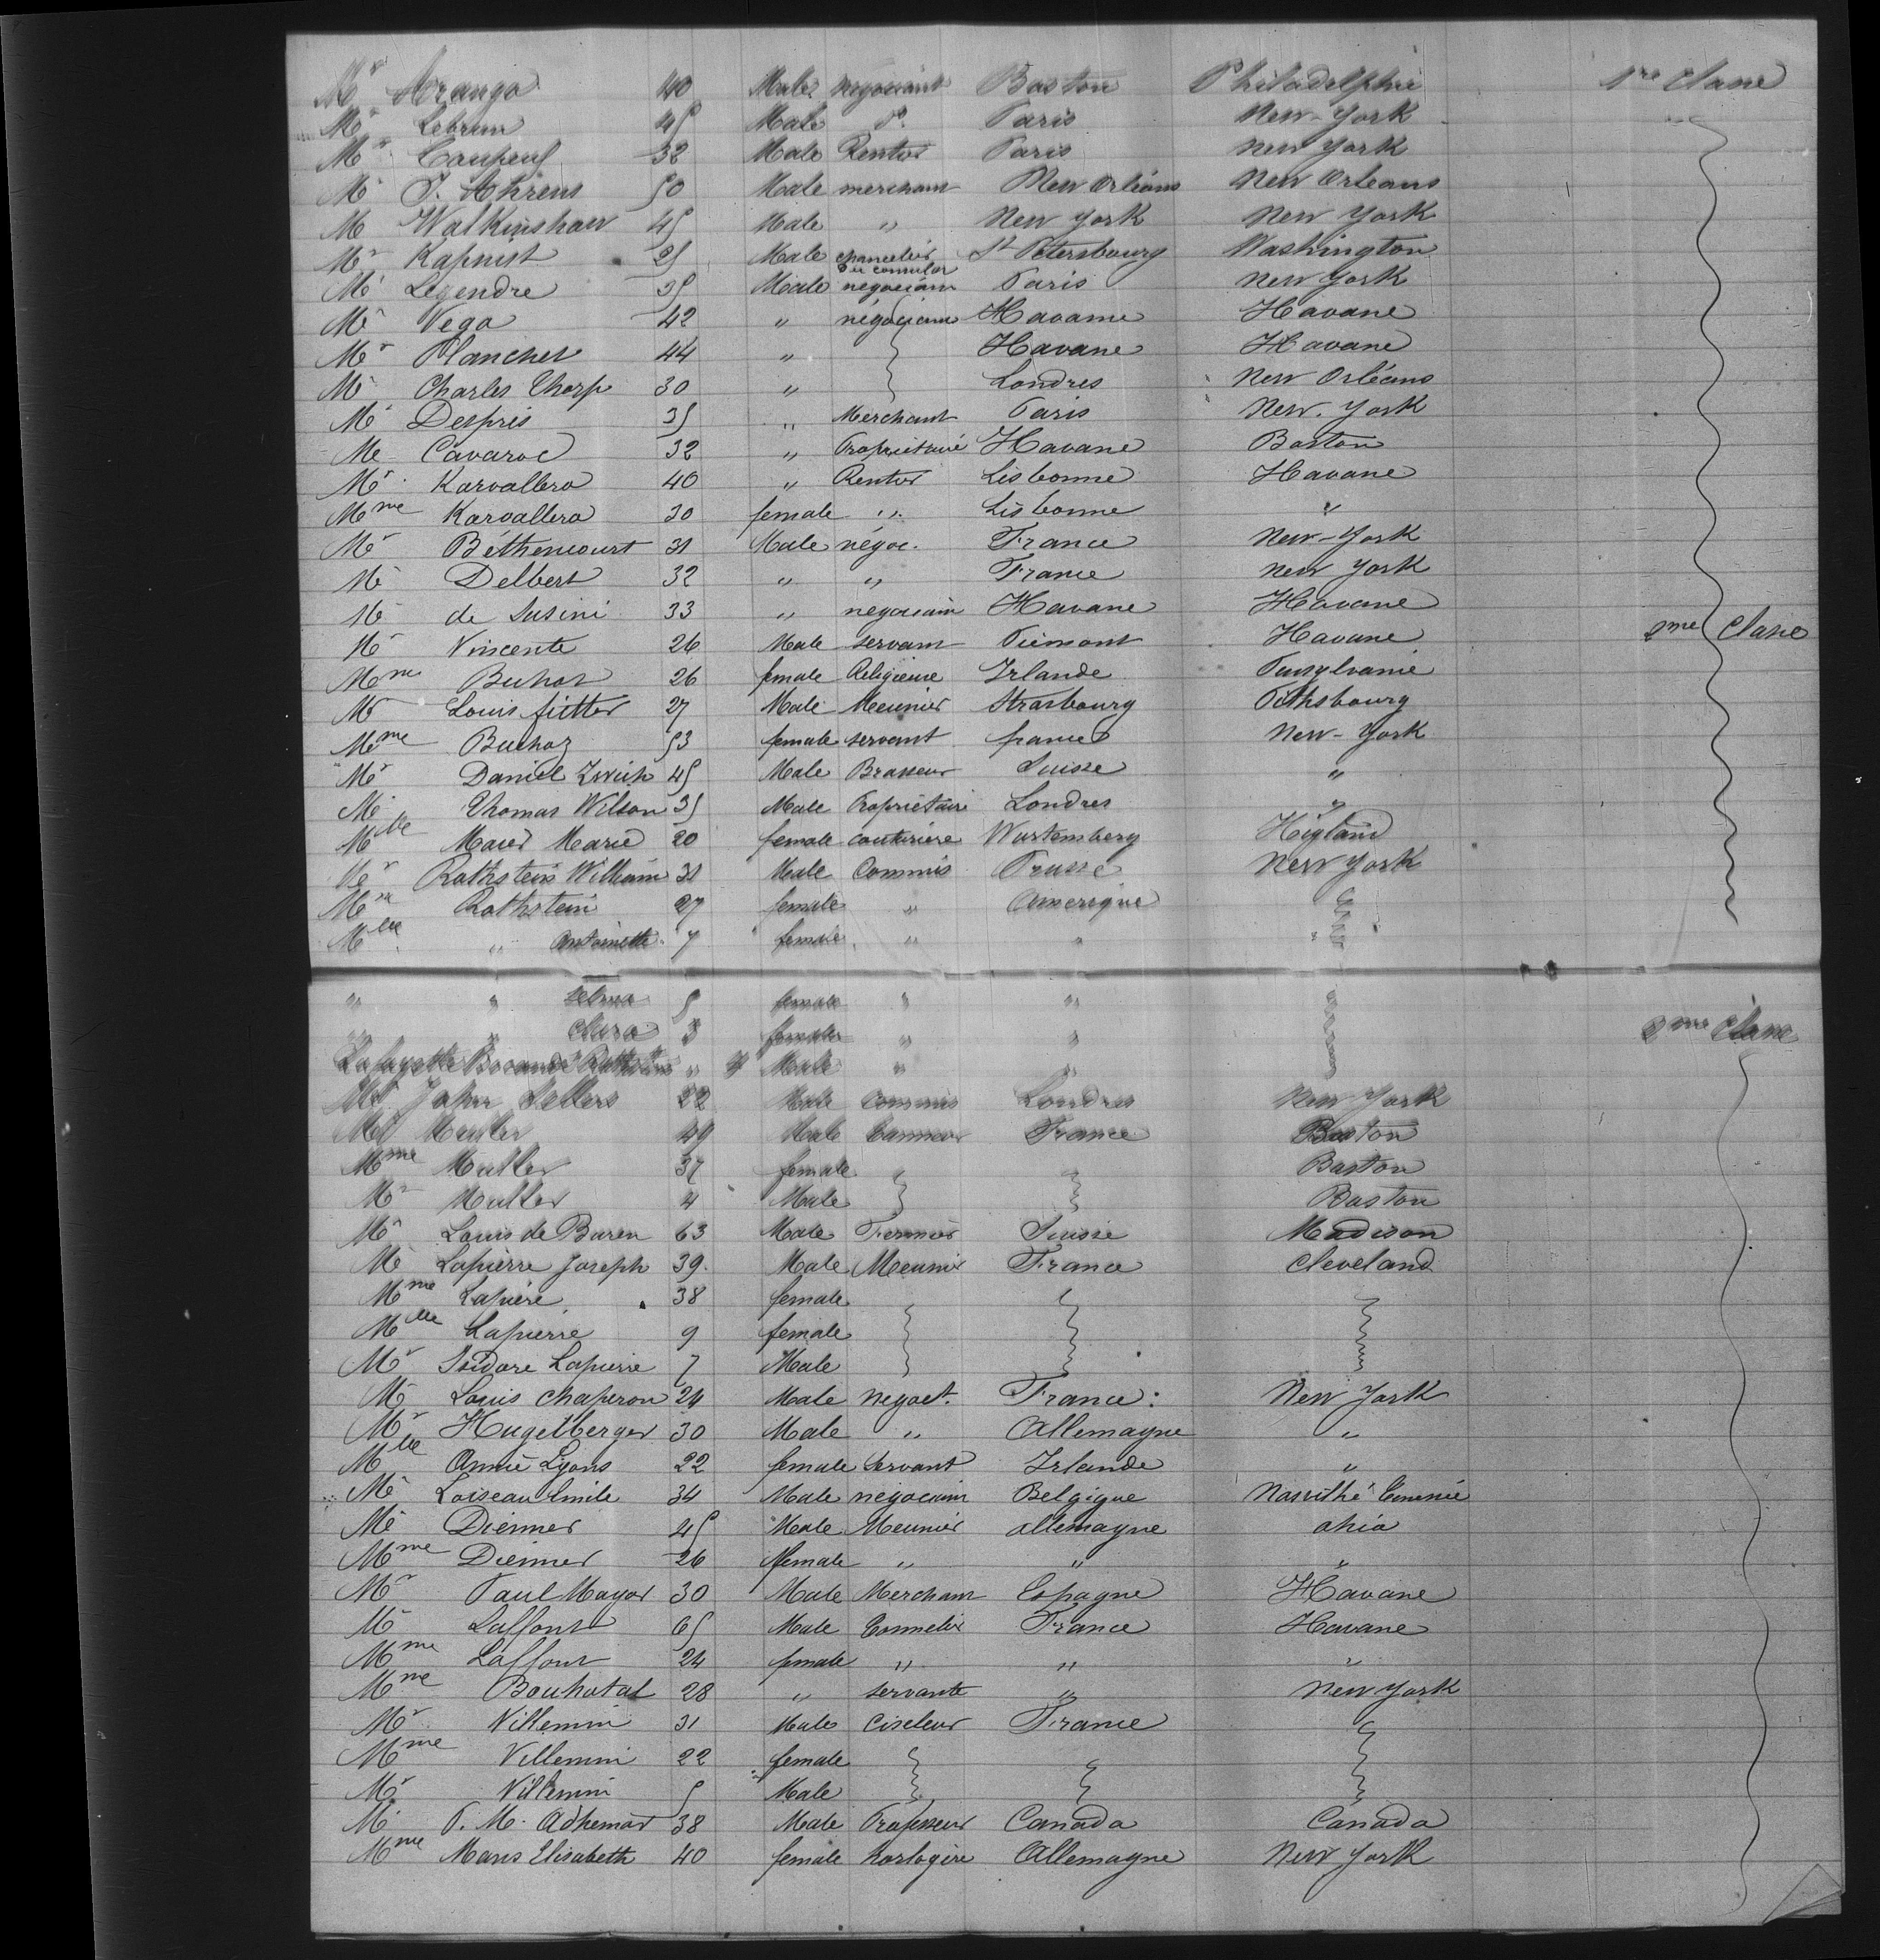 Mr Arango 40 Male negociant Boston Philadelphie 1re Classe
Mr Lebrun 45 Male do Paris New-York
Mr 32 Male Rentier Paris New York
Mr J. Ahrens 50 Male merchant New Orléans New Orleans
M Walkinshaw 45 Male " New York New York
Mr Kapnist 25 Male chancelier du consulat St Petersbourg Washington
Mr Legendre 35 Male négociant Paris New York
Mr Vega 42 " négociant Havane Havane
Mr Planchet 44 " Havane Havane
Mr Charles Thorp 30 " Londres New Orléans
Mr Despris 35 " Merchant Paris New. York
Mr Cavaroc 32 " Propriétaire Havane Boston
Mr Karvallero 40 " Rentier Lisbonne Havane
Mme Karvallero 30 female " Lisbonne "
Mr Béthencourt 31 Male négoc. France New-York
Mr Delbert 32 " " France New York
Mr de Susini 33 " negociant Havane Havane
Mr Vincente 26 Male servant Piémont Havane 2me Classe
Mme 26 female Religieuse Irlande Pensylvanie
Mr Louis 27 Male Meunier Strasbourg Pithsbourg
Mme Buchoz 53 female servant france New-York
Mr Daniel 45 Male Brasseur Suisse "
Mr Thomas Wilson 35 Male Propriétaire Londres "
Mlle Maier Marie 20 female couturière Wurtemberg Higland
Mr Rothstein William 31 Male Commis Prusse New York
Mme Rothstein 27 female " Amerique
Mlle " Antoinette 7 female " "
" " Selma 5 female " "
" " Clara 3 female " " 2me Classe
Lafayette Rothstein " Male " "
Mr John Sellers 22 Male Commis Londres New York
Mr Muller 49 Male Tanneur France Boston
Mme Muller 37 female Boston
Mr Muller 4 Male Boston
Mr Louis de Buren 63 Male Fermier Suisse Madison
Mr Lapierre Joseph 39. Male Meunier France Cleveland
Mme Lapierre 38 female
Mlle Lapierre 9 female
Mr Isidore Lapierre 7 Male
Mr Louis Chaperon 24 Male negoct. France New York
Mr Hugelberger 30 Male " Allemagne "
Mlle Annie Lyons 22 female Servant Irlande "
Mr Loiseau Emile 34 Male négociant Belgique
Mr Diemer 45 Male Meunier allemagne ohio
Mme Diemer 26 female " " "
Mr Paul Mayor 30 Male Merchant Espagne Havane
Mr Laffont 65 Male Tonnelier France Havane
Mme Laffont 24 female " " "
Mme Bouhatal 28 " servante " New York
Mr Villemin 31 Male Ciseleur France
Mme Villemin 22 female
Mr Villemin 5 Male
Mr P. M. Adhemar 38 Male Professeur Canada Canada
Mme Maris Elisabeth 40 female horlogère Allemagne New York